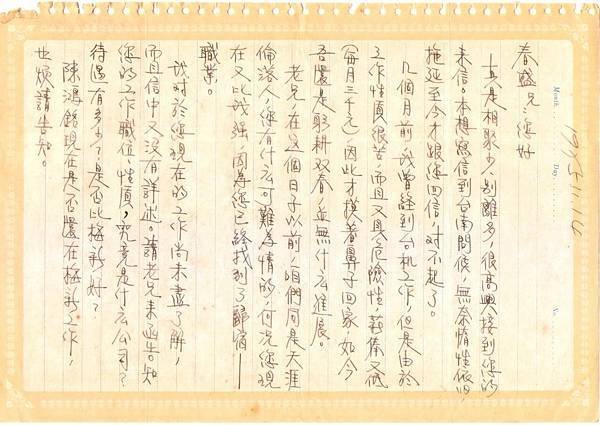 1975.11.16.
Month
Day
No.
春盛兄:您好
真是相聚少,别離多,很高興接到您的
來信。本想寫信到台南問候,無奈惰性依舊
拖延至今才跟您回信,对不起了。
几個月前,我曾經到台机工作,但是由於
工作性質很苦,而且又具危險性,薪俸又低
(每月三千元)因此才摸着鼻子回家,如今
吾還是躬耕双春,並無什么進展。
老兄,在这個日子以前,咱們同是天涯
倫落人,您有什么可難為情的,何况您現
在又比我强,因為您已經找到了歸宿——
職業。
我对於您現在的工作尚未盡了解,
而且信中又沒有詳述。請老兄來函告知
您的工作職位,性質,究竟是什么公司?
待遇有多少?是否比梅新好?
陳鴻銘現在是否還在梅新工作,
也煩請告知。